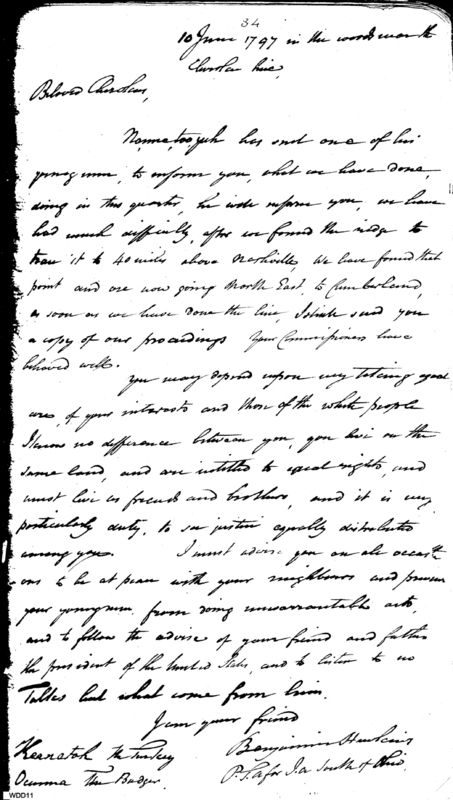 34
10 June 1797 in the woods near the
Cherokee line,
Beloved Cherokees,
has sent one of his
young men, to inform you, what we have done,
doing in this quarter, he will inform you, we have
had much difficulty, after we found the ridge to
trace it to 40 miles above Nashville, We have found that
point and are now going North East, to Cumberland,
as soon as we have done the line, I shall send you
a copy of our proceedings Your Commissioners have
behaved well.
You may depend upon my taking equal
care of your interests and those of the white people
I know no difference between you, you live on the
same land, and are intitled to equal rights, and
must live as friends and brothers, and it is my
particularly duty, to see justice equally distributed
among you. I must advise you on all occasi
ons to be at peace with your neighbours and prevent
your young men, from doing unwarrantable acts,
and to follow the advise of your friend and father
the president of the United States, and to listen to no
Talks but what come from him.
I am your friend
Benjamin Hawkins
P. T. A for I. A South of Ohio
Keenatah the Turkey
Ocunna The Badger
WDD11